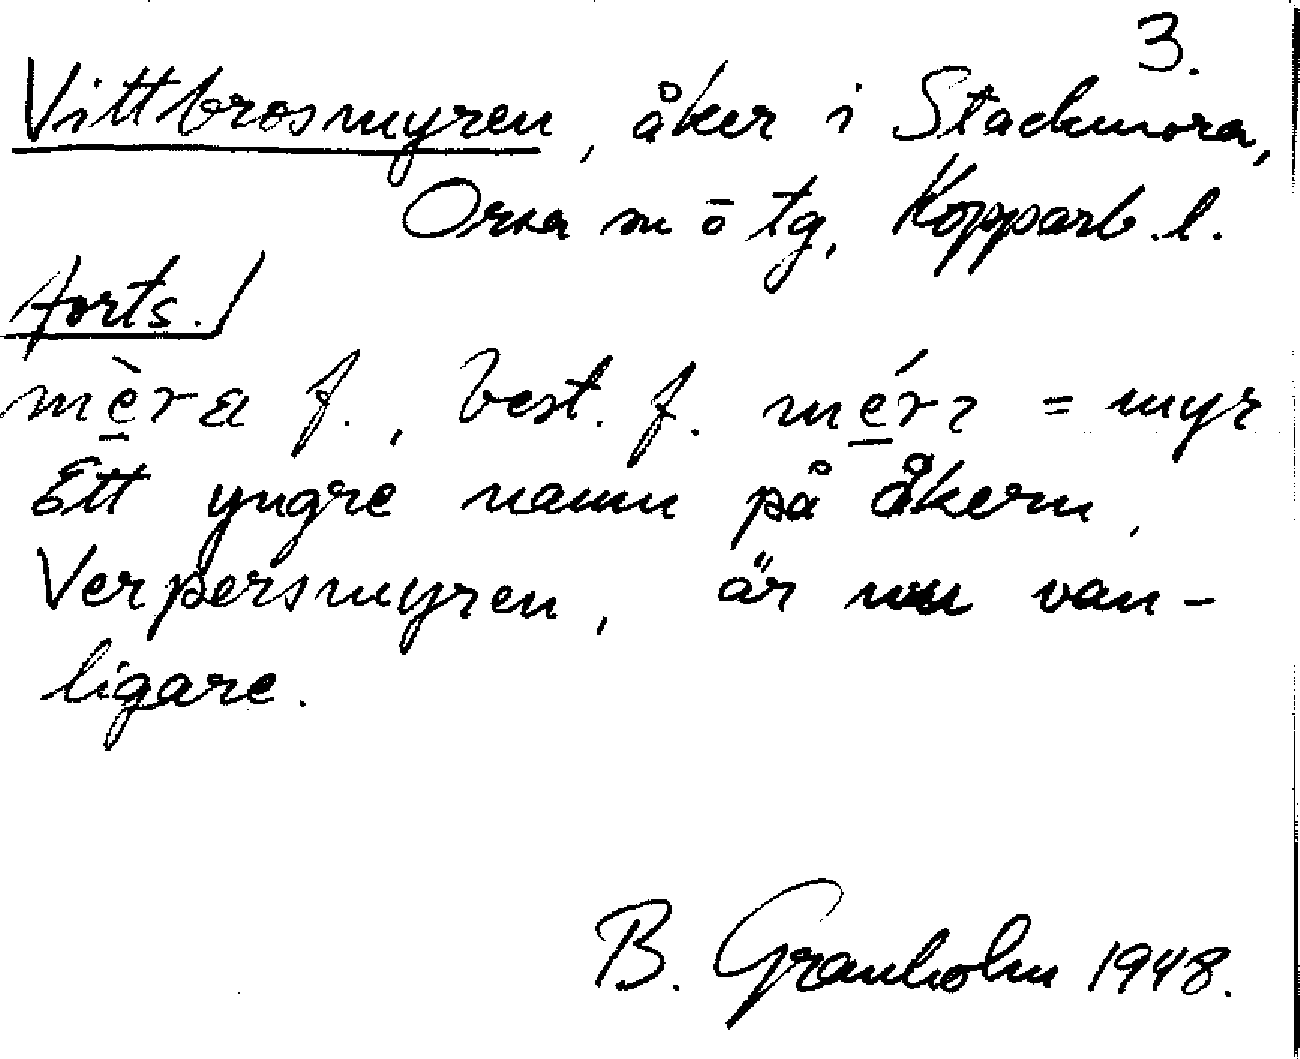 3.
Vittbrosmyren, åker i Stackmora,
Orsa sn o tg, Kopparb. l.
forts.
mèra f., best. f. mérɿ = myr
Ett yngre namn på åkern,
Verpersmyren, är nu van-
ligare.
B. Granholm 1948.